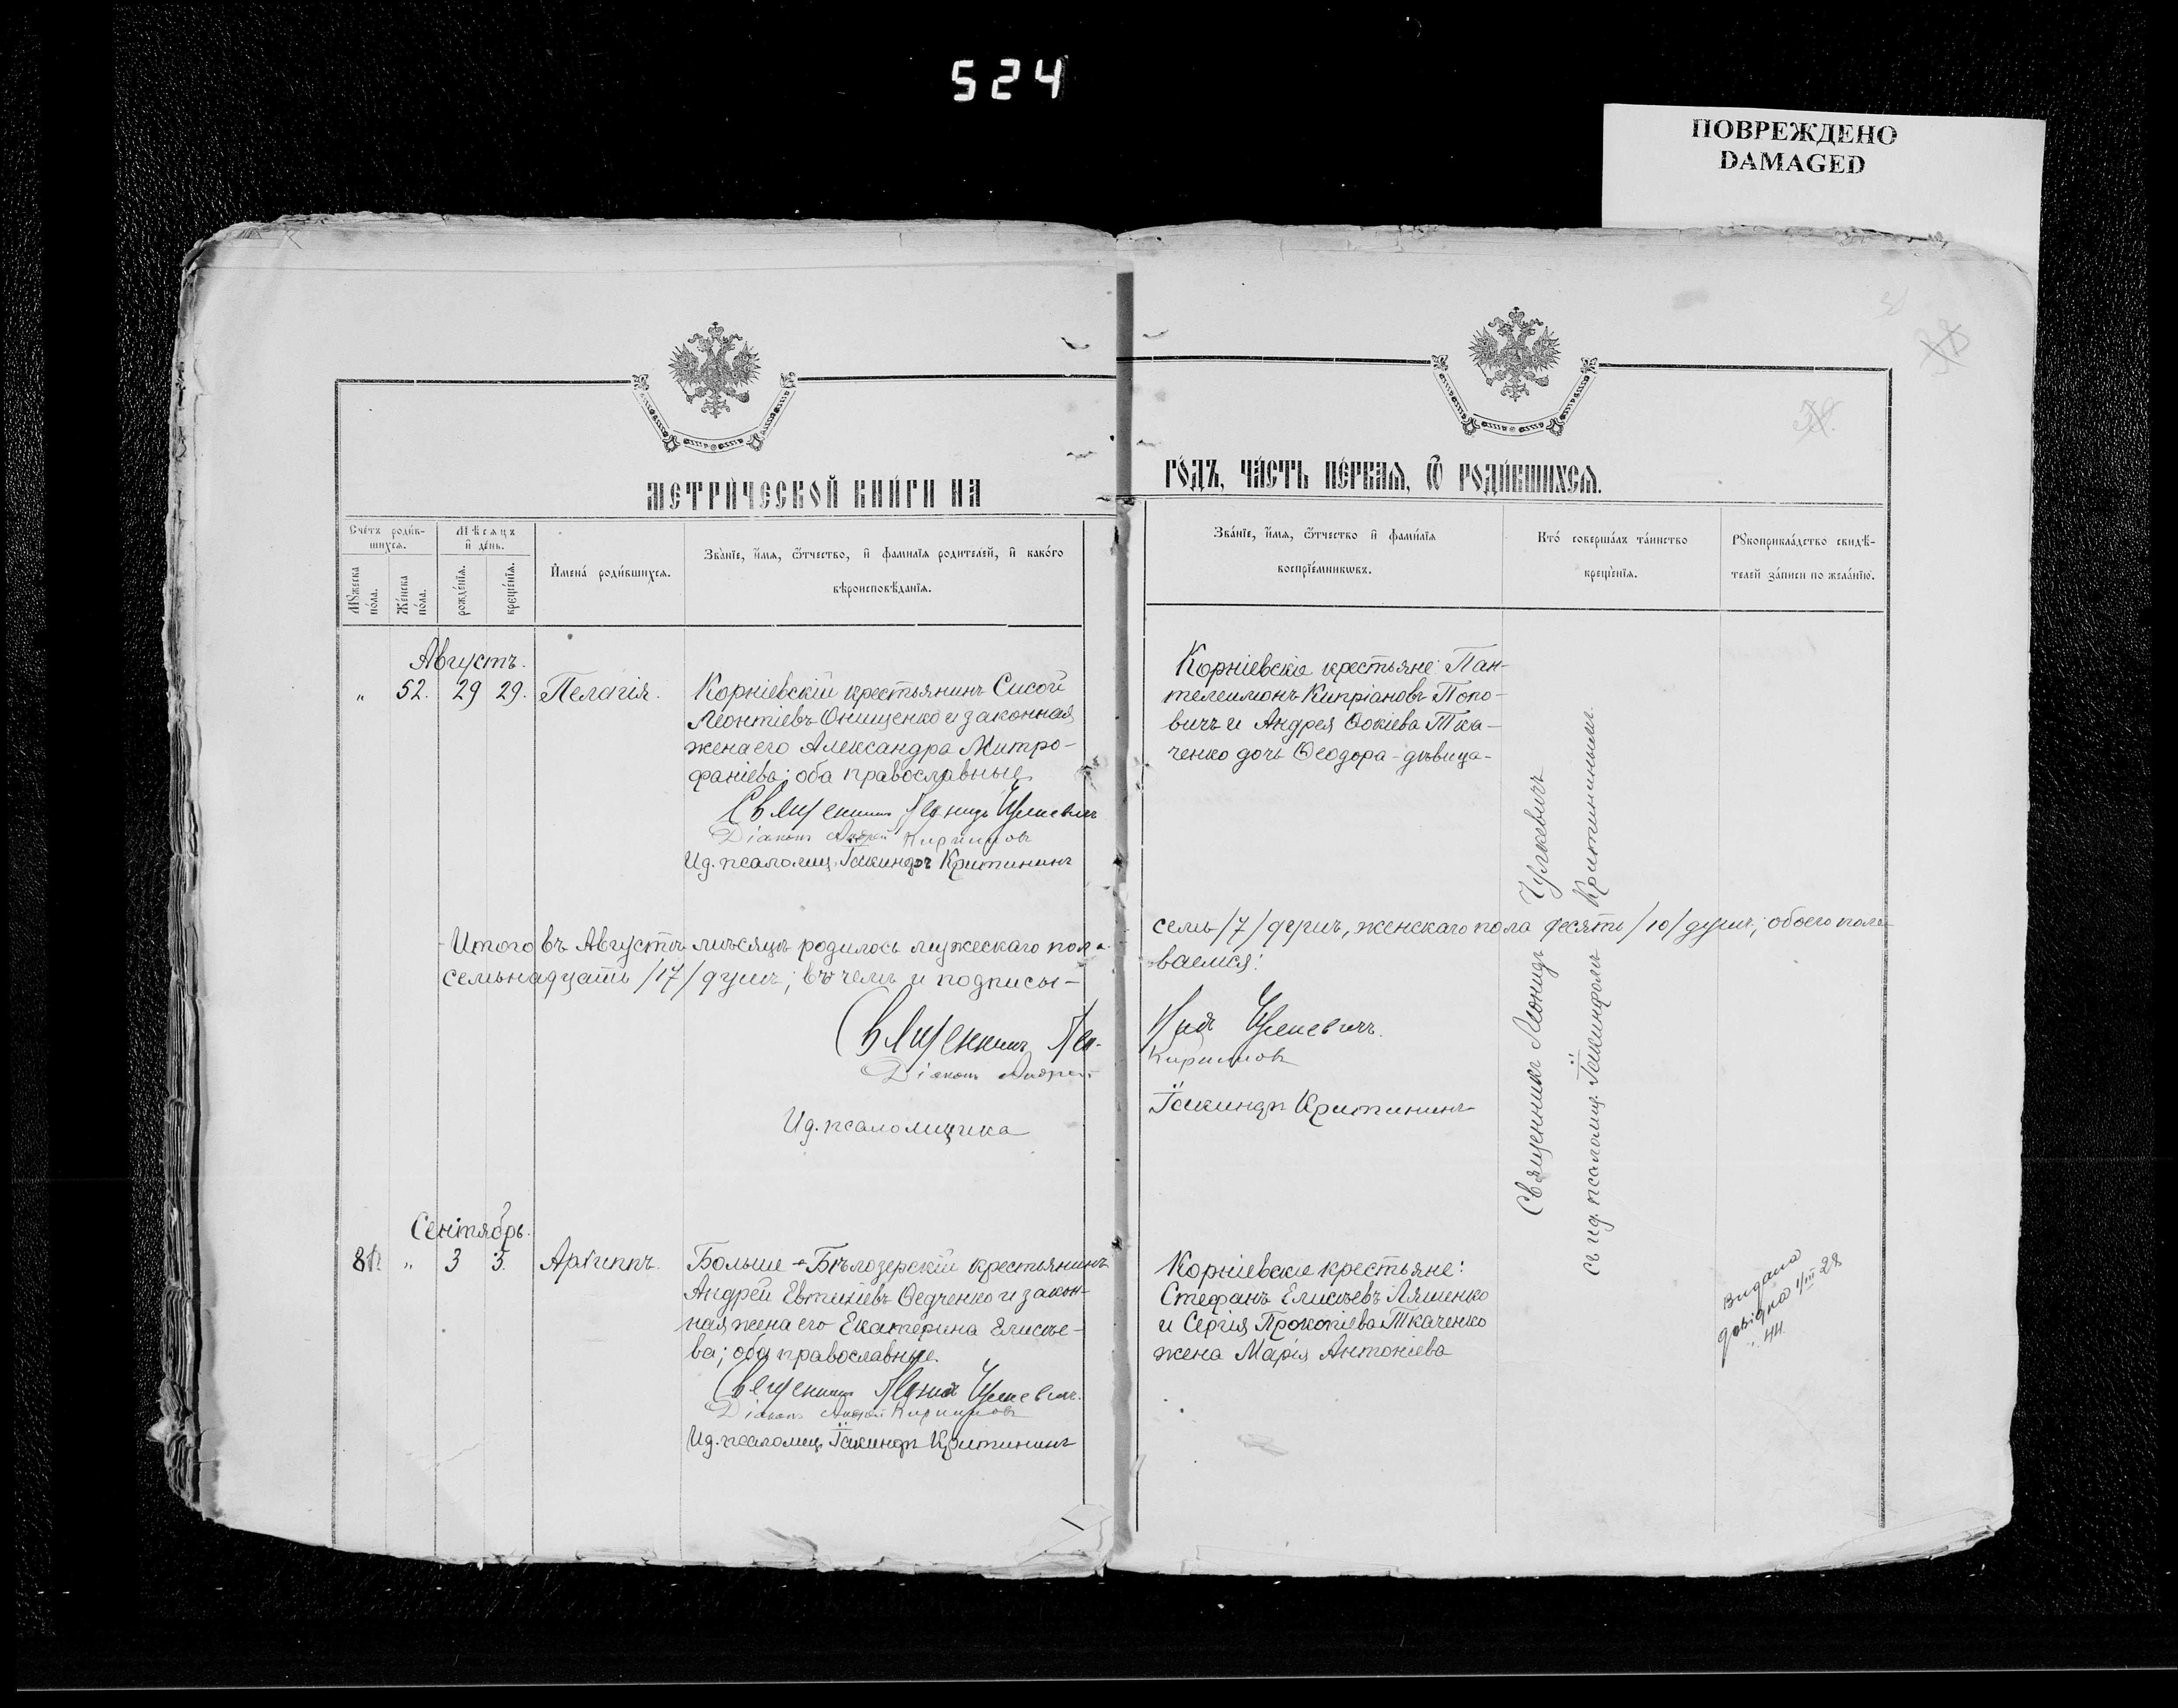 524
ПОВРЕЖДЕНО
DAMAGED
МЕТРИ́ЧЕСКОЙ КНИ́ГИ НА
ГО́ДЪ, ЧА́СТЬ ПЕ́РВАѦ, Ѽ РОДИ́ВШИХСѦ.
Сче́тъ роди́в-
шихсѧ.
Мѣ́сѧцъ
и҆ де́нь.
Мꙋ́жеска
по́ла.
Же́нска
по́ла.
рожде́нїѧ.
креще́нїѧ.
И҆мена́ роди́вшихсѧ.
Зва́нїе, и҆́мѧ, ѻ҆́тчество, и҆ фами́лїѧ роди́телей, и҆ како́гѡ
вѣроисповѣ́данїѧ.
Зва́нїе, и҆́мѧ, ѻ҆́тчество и҆ фами́лїѧ
воспрїе́мникѡвъ.
Кто́ соверша́лъ та́инство
креще́нїѧ.
Рꙋкоприкла́дство свидѣ́-
телей за́писи по жела́нїю.
Августъ.
" 52. 29 29. Пелагія.
Корніевскій крестьянинъ Сисой
Леонтіевъ Онищенко и законная
жена его Александра Митро-
фаніева; оба православные
Священникъ Леонидъ Чулкевичъ
Діаконъ Андрей Кирилловъ
Ид. псаломщ. Іакинфъ Критининъ
Корніевскіе крестьяне: Пан-
телеимонъ Кипріановъ Попо-
вичъ и Андрея Ѳокіева Тка-
ченко дочь Ѳеодора - дѣвица -
Итого въ Августѣ мѣсяцѣ родилось мужескаго пола
семь /7/ душъ, женскаго пола десять /10/ душъ; обоего пола
семьнадцать /17/ душъ; въ чемъ и подписы-
ваемся:
Священникъ Лео-
нидъ Чулкевичъ.
Діаконъ Андрей
Кирилловъ
Ид. псаломщика
Іакинфъ Критининъ
Священникъ Леонидъ Чулкевичъ
съ ид. псаломщ. Іакинфомъ Критининымъ.
Сентябрь.
" 3 3. Архиппъ.
Больше-Бѣлозерскій крестьянинъ
Андрей Евтихіевъ Ѳедченко и закон-
ная жена его Екатерина Елисѣе-
ва; оба православные.
Священникъ Леонидъ Чулкевичъ.
Діаконъ Андрей Кирилловъ
Ид. псаломщ. Іакинфъ Критининъ
Корніевскіе крестьяне:
Стефанъ Елисѣевъ Ляшенко
и Сергія Прокопіева Ткаченко
жена Марія Антоніева
Видана
довідка 1/III 28
44.